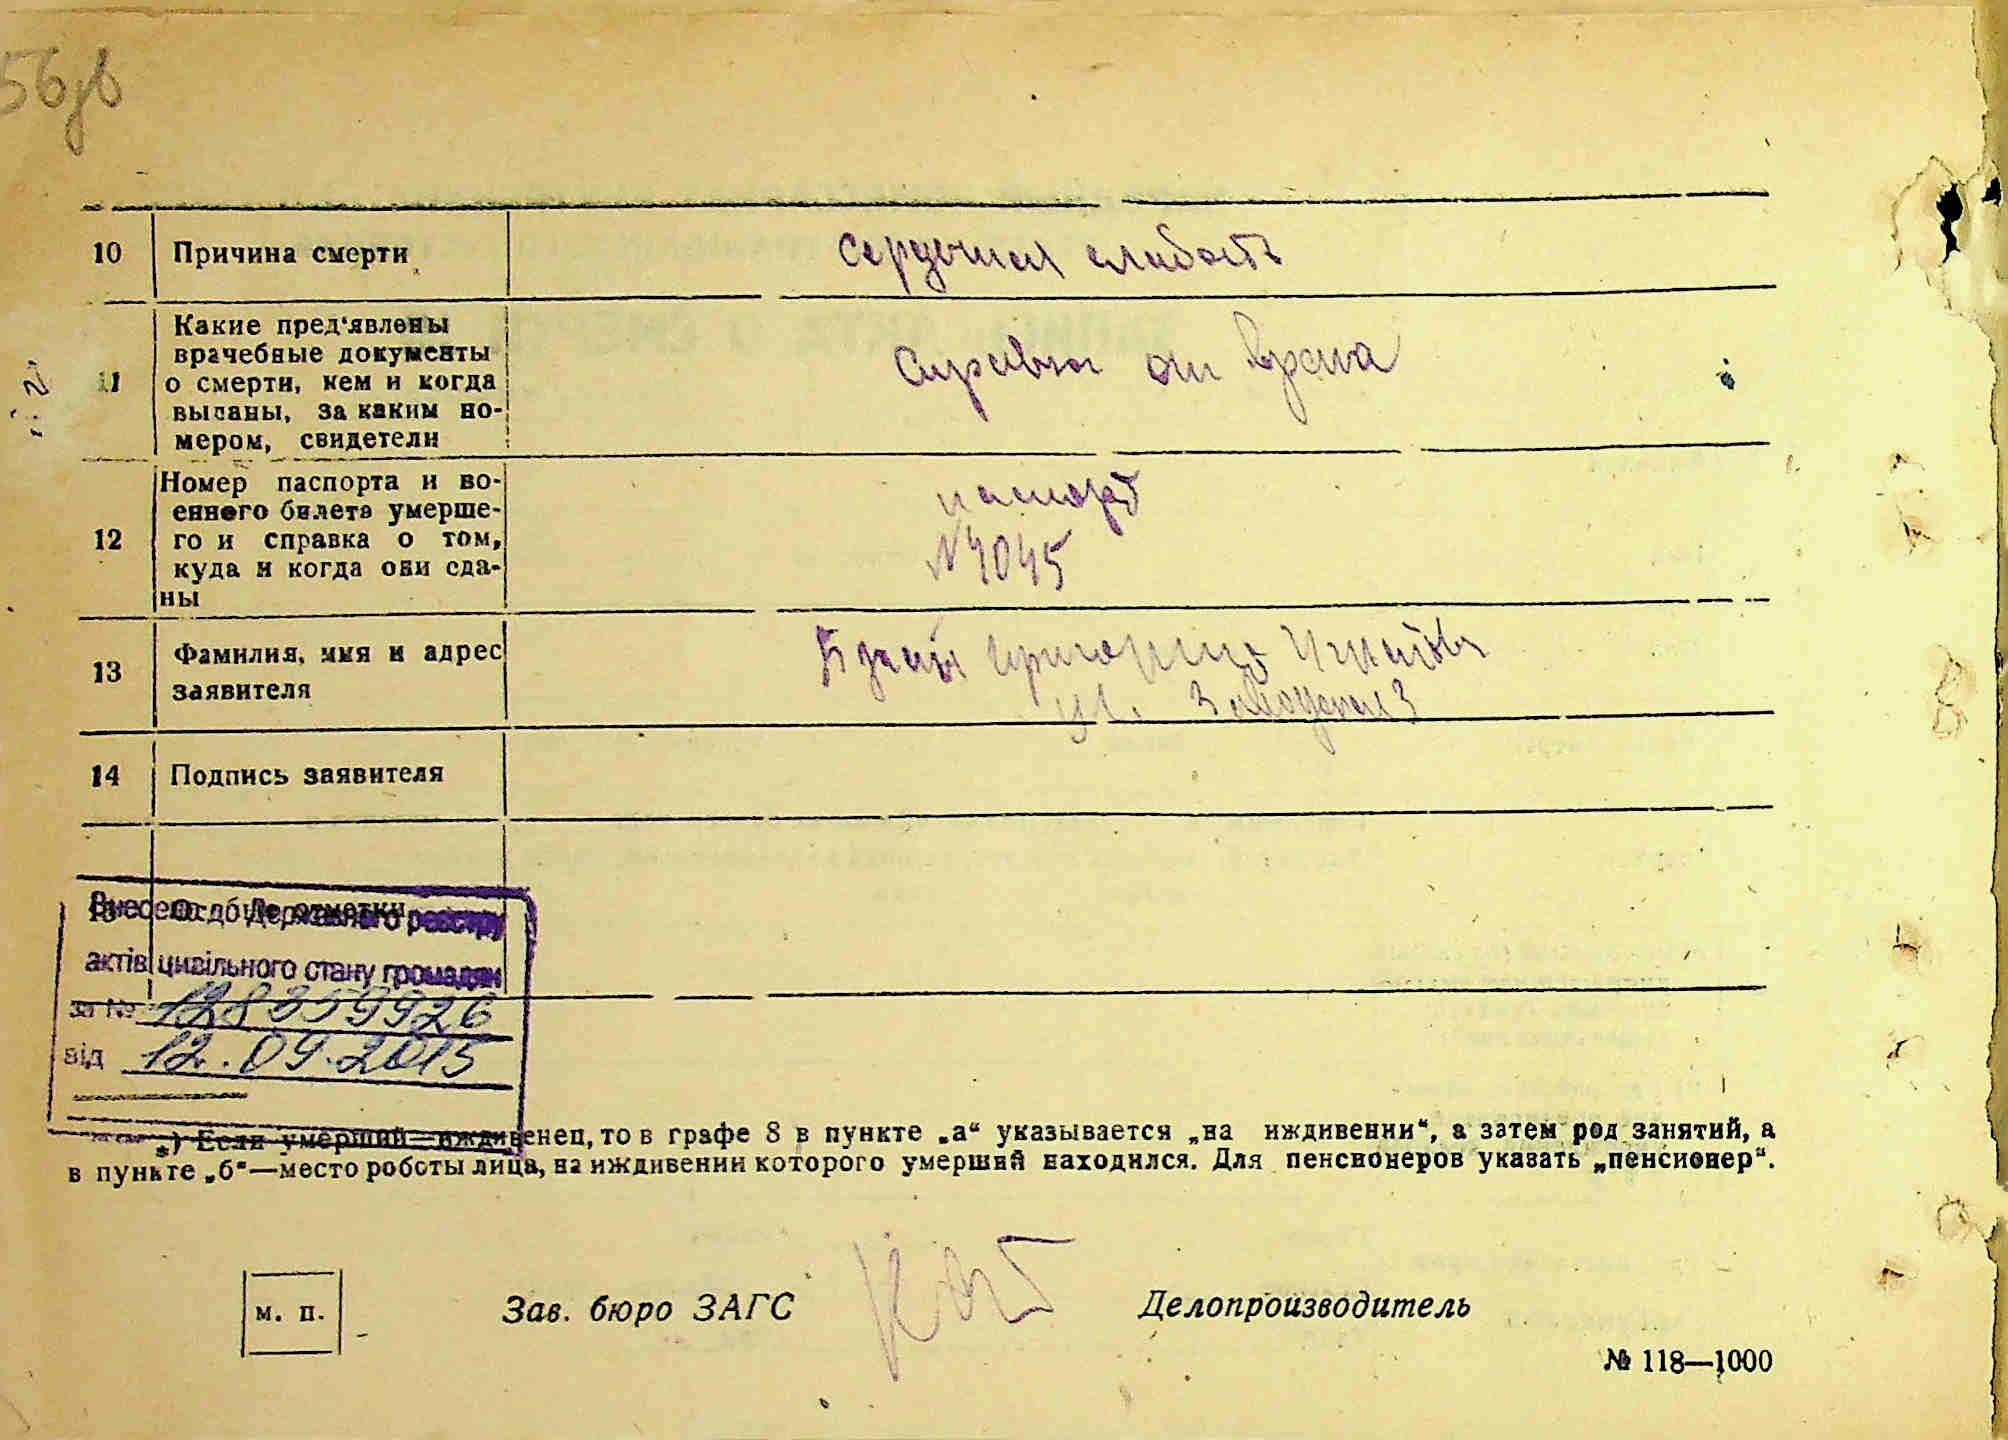 10 Причина смерти сердечная слабость
11 Какие пред'явлены
врачебные документы
о смерти, кем и когда
выданы, за каким но-
мером, свидетели
Справка от врача
12 Номер паспорта и во-
енного билета умерше-
го и справка о том,
куда и когда они сда-
ны
паспорт
№ 4045
13 Фамилия, имя и адрес
заявителя
ул. Заводская 3
14 Подпись заявителя
15 Особые отметки
Внесено до Державного реєстру
актів цивільного стану громадян
за № 128359926
від 12.09.2015
*) Если умерший—иждивенец, то в графе 8 в пункте „а“ указывается „на иждивении“, а затем род занятий, а
в пункте „б“—место роботы лица, на иждивении которого умерший находился. Для пенсионеров указать „пенсионер“.
м. п. Зав. бюро ЗАГС Делопроизводитель
№ 118—1000